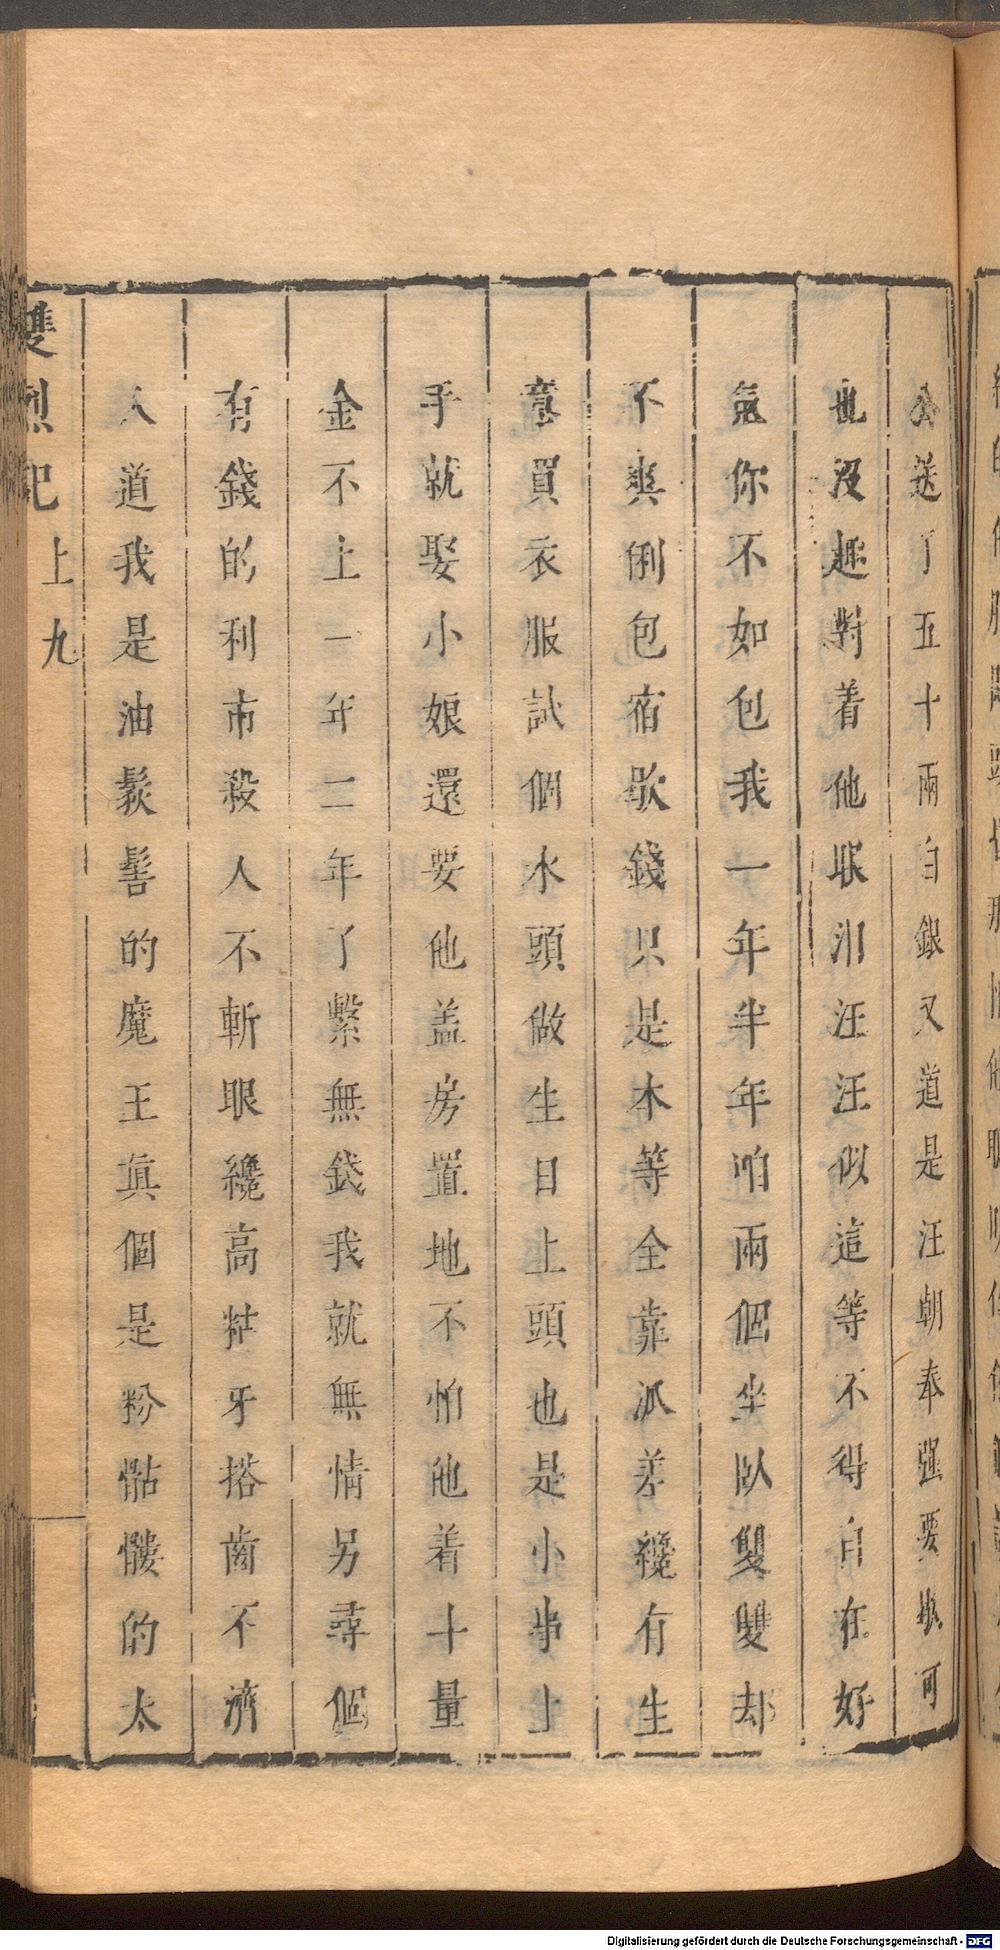 公送了五十兩白銀又道是汪朝奉强要耍可
也沒趣對着他眼泪汪汪似這等不得自在好
氣你不如包我一年半年咱兩個坐臥雙雙却
不爽俐包宿歇錢只是本等全靠派差纔有生
意買衣服試個水頭做生日上頭也是小事上
手就娶小娘還要他盖房置地不怕他着十量
金不上一年二年了繫無錢我就無情另尋個
有錢的利市殺人不斬眼纔高粘牙搭齒不濟
人道我是油髮髻的魔王眞個是粉骷髏的太
雙烈記 上 九
Digitalisierung gefördert durch die Deutsche Forschungsgemeinschaft - DFG